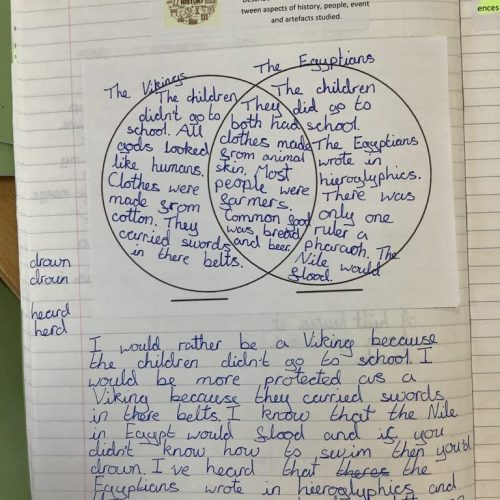 HISTORY
tween aspects of history, people, event
and artefacts studied.
ences
The Vikings
The children
didn't go to
school. All
gods looked
like humans.
Clothes were
made from
cotton. They
carried swords
in there belts.
They
both had
clothes made
from animal
skin. Most
people were
farmers.
Common food
was bread
and beer.
The Egyptians
The children
did go to
school.
The Egyptians
wrote in
hieroglyphics.
There was
only one
ruler a
pharaoh. The
Nile would
flood.
drown
droun
heard
herd
I would rather be a Viking because
the children didn't go to school. I
would be more protected as a
Viking because they carried swords
in there belts. I know that the Nile
in Egypt would flood and if you
didn't know how to swim then you'd
drown. I've heard that theres the
Egyptians wrote in hieroglyphics and